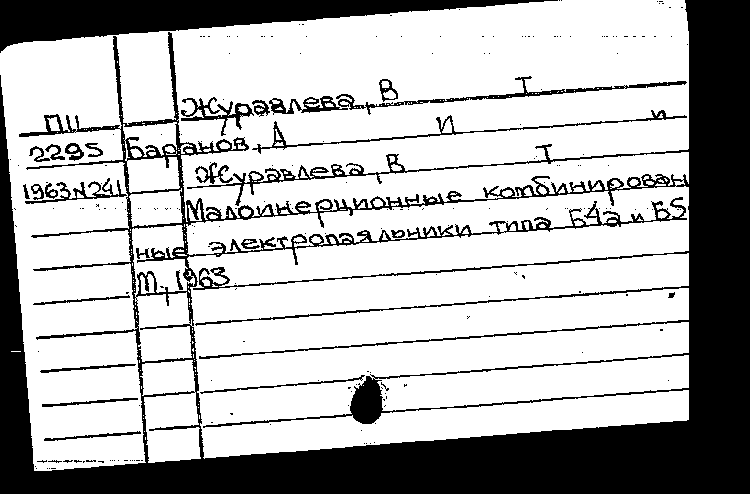 Журавлева, В Т
П11
2295 Баранов, А И и
Журавлева, В Т
1963 N241
Малоинерционные комбинирован
ные электропаяльники типа Б4а и Б5
М., 1963